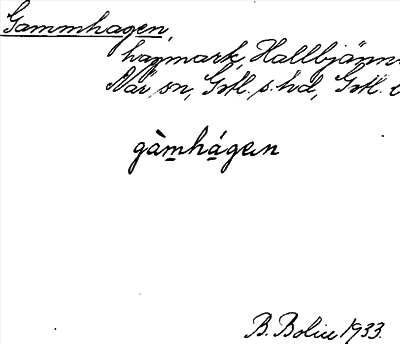 Gammhagen,
hagmark, Hallbjänn
När sn, Gtl. s. hd, Gtl.
gàmhágen
B. Bolin 1933.